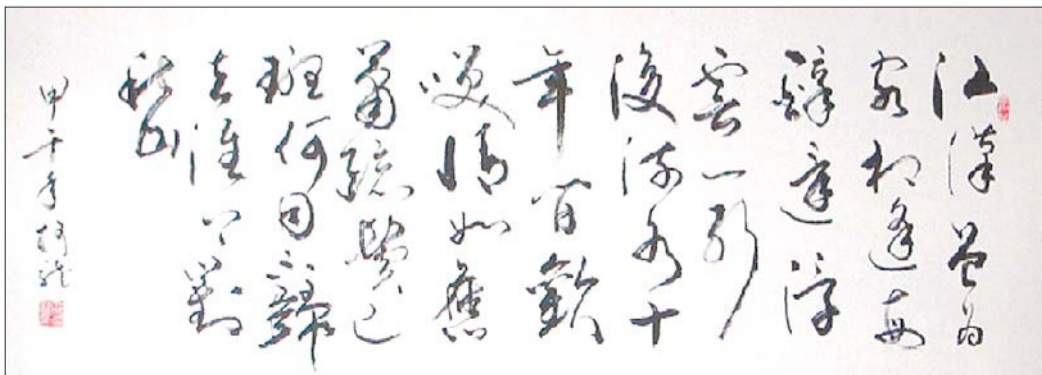 江漢曾為
客相逢每
醉還浮
雲一別
後流水十
年間歡
笑情如舊
蕭疏鬢已
斑何因歸
去淮上對
秋山
甲午年